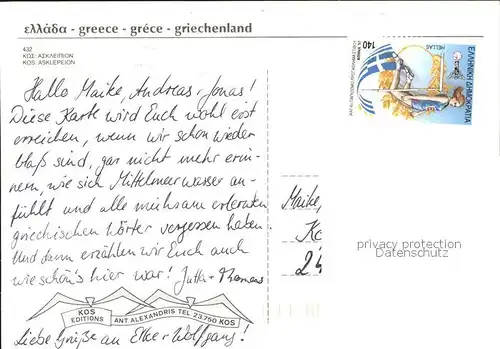 ελλάδα - greece - gréce - griechenland
432
ΚΩΣ: ΑΣΚΛΗΠΙΕΙΟΝ
KOS: ASKLEPEION
Hallo Maike, Andreas, Jonas!
Diese Karte wird Euch wohl erst
erreichen, wenn wir schon wieder
blaß sind, gar nicht mehr erin-
nern, wie sich Mittelmeerwasser an-
fühlt und alle mühsam erlernten
griechischen Wörter vergessen haben.
Und dann erzählen wir Euch auch
wie schön's hier war! Jutta + Thomas
KOS
EDITIONS
ANT. ALEXANDRIS TEL 23.750 KOS
Liebe Grüße an Elke + Wolfgang!
140
ΕΛΛΗΝΙΚΗ ΔΗΜΟΚΡΑΤΙΑ
HELLAS
Maike,
Ko
24
privacy protection
Datenschutz